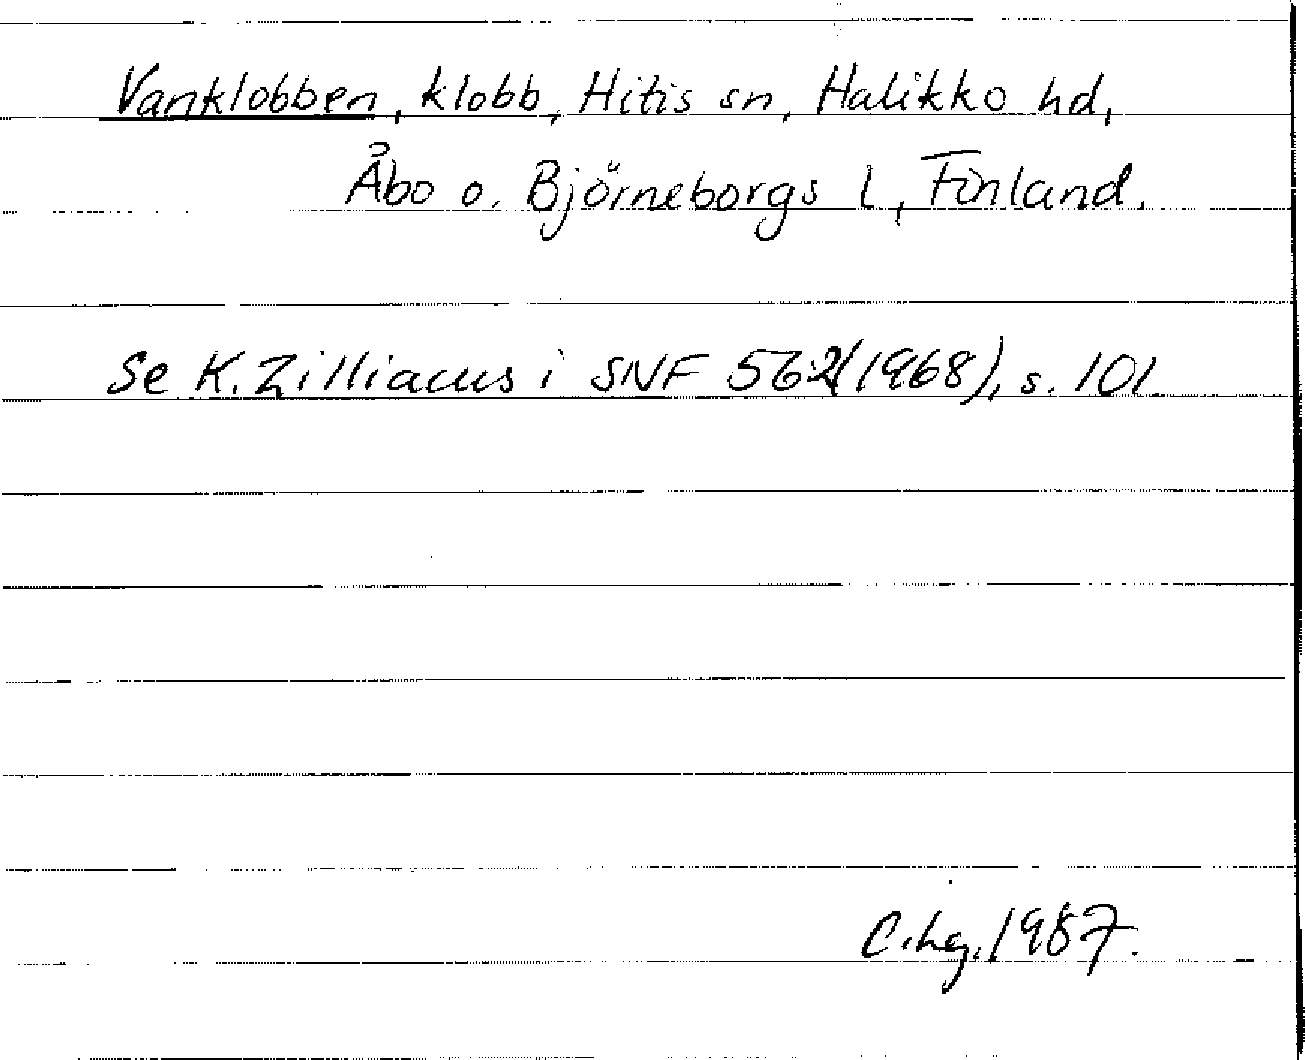 Vanklobben, klobb, Hitis sn, Halikko hd,
Åbo o. Björneborgs l, Finland.
Se K. Zilliacus i SNF 56:2 (1968), s. 101
C.hg. 1987.